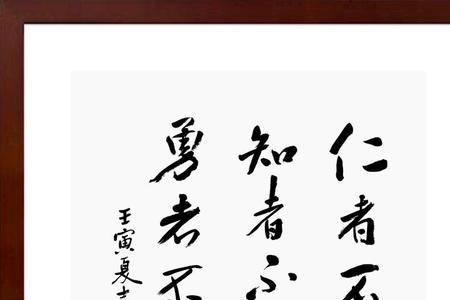 仁者不
知者不
勇者不
壬寅夏